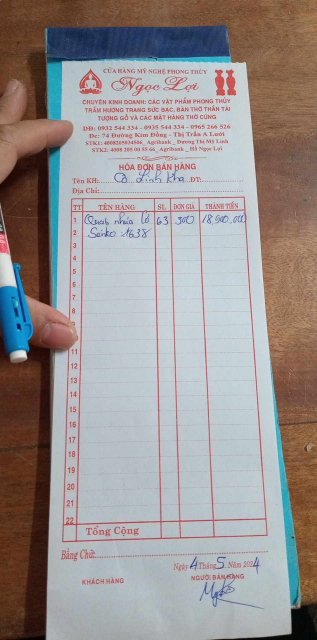 CỬA HÀNG MỸ NGHỆ PHONG THỦY
Ngọc Lợi
CHUYÊN KINH DOANH: CÁC VẬT PHẨM PHONG THỦY
TRẦM HƯƠNG TRANG SỨC BẠC, BÀN THỜ THẦN TÀI
TƯỢNG GỖ VÀ CÁC MẶT HÀNG THỜ CÚNG
DĐ: 0932 544 334 - 0935 544 334 - 0965 266 526
Đc: 74 Đường Kim Đồng - Thị Trấn A Lưới
STK1: 4008205034986_ Agribank _ Dương Thị Mỹ Linh
STK2: 4008 205 00 55 66_ Agribank _ Hồ Ngọc Lợi
HÓA ĐƠN BÁN HÀNG
Tên KH: Cô Linh Kha ĐT:
Địa Chỉ:
TT TÊN HÀNG SL ĐƠN GIÁ THÀNH TIỀN
1 Quạt 63 300 18,900,000
2 Senko
3
4
5
6
7
8
9
11
12
13
14
15
16
17
18
19
20
21
22
Tổng Cộng
Bằng Chữ:
Ngày 4 Tháng 5 Năm 2024
KHÁCH HÀNG NGƯỜI BÁN HÀNG